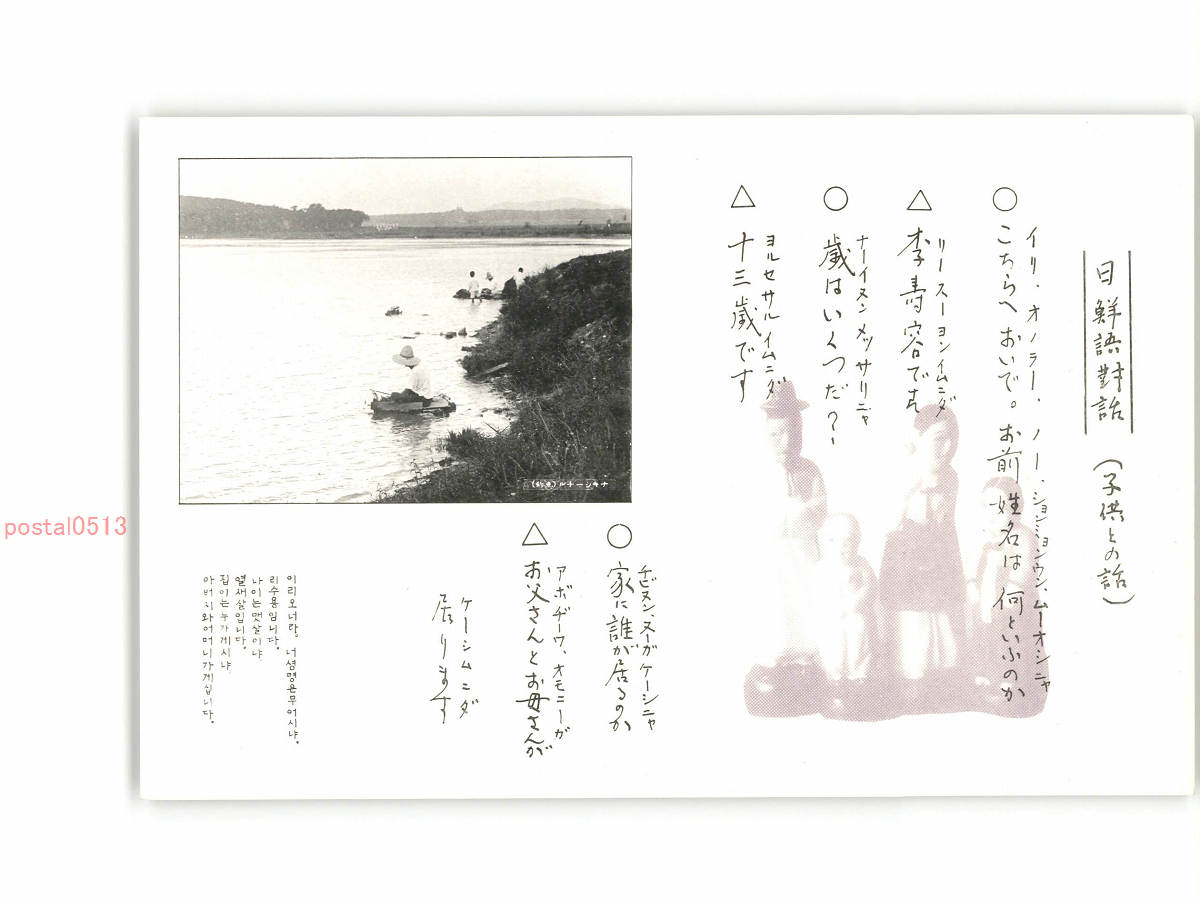 日鮮語對話
(子供との話)
イリ、オノラー、ノー、ションミョンウン、ムーオシニャ
○こちらへおいで。お前姓名は何といふのか
リースーヨンイムニダ
△李寿容です
ナーイヌンメッサリニャ
○歳はいくつだ?
ヨルセサルイムニダ
△十三歳です
チビヌン、ヌーガケーシニャ
○家に誰が居るのか
アボヂーワ、オモニーガ
△お父さんとお母さんが
ケーシムニダ
居ります
이리오너라。너성명은무어시냐。
리수용임니다。
나이는멧살이냐
열새살입니다。
집이는누가게시냐
아버지와어머니가게십니다。
postal0513